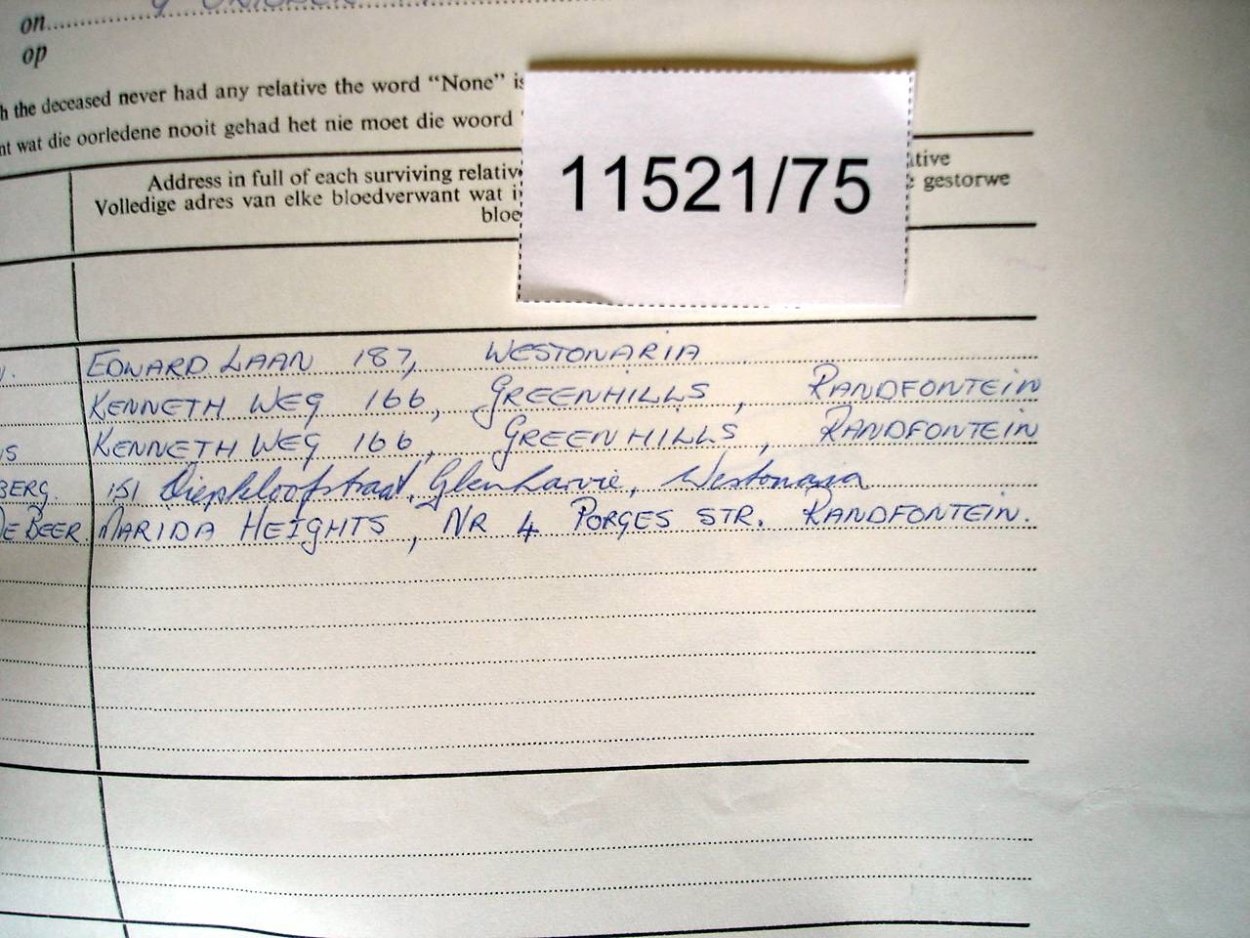 on
op
h the deceased never had any relative the word “None” is
nt wat die oorledene nooit gehad het nie moet die woord
11521/75
Address in full of each surviving relativ ative
Volledige adres van elke bloedverwant wat i gestorwe
bloe
EDWARD LAAN 187, WESTONARIA
KENNETH WEG 166, GREENHILLS, RANDFONTEIN
IS KENNETH WEG 166, GREENHILLS, RANDFONTEIN
BERG. 151 Diepkloofstraat, Glenharvie, Westonaria
DE BEER MARIDA HEIGHTS, NR 4 PORGES STR. RANDFONTEIN.